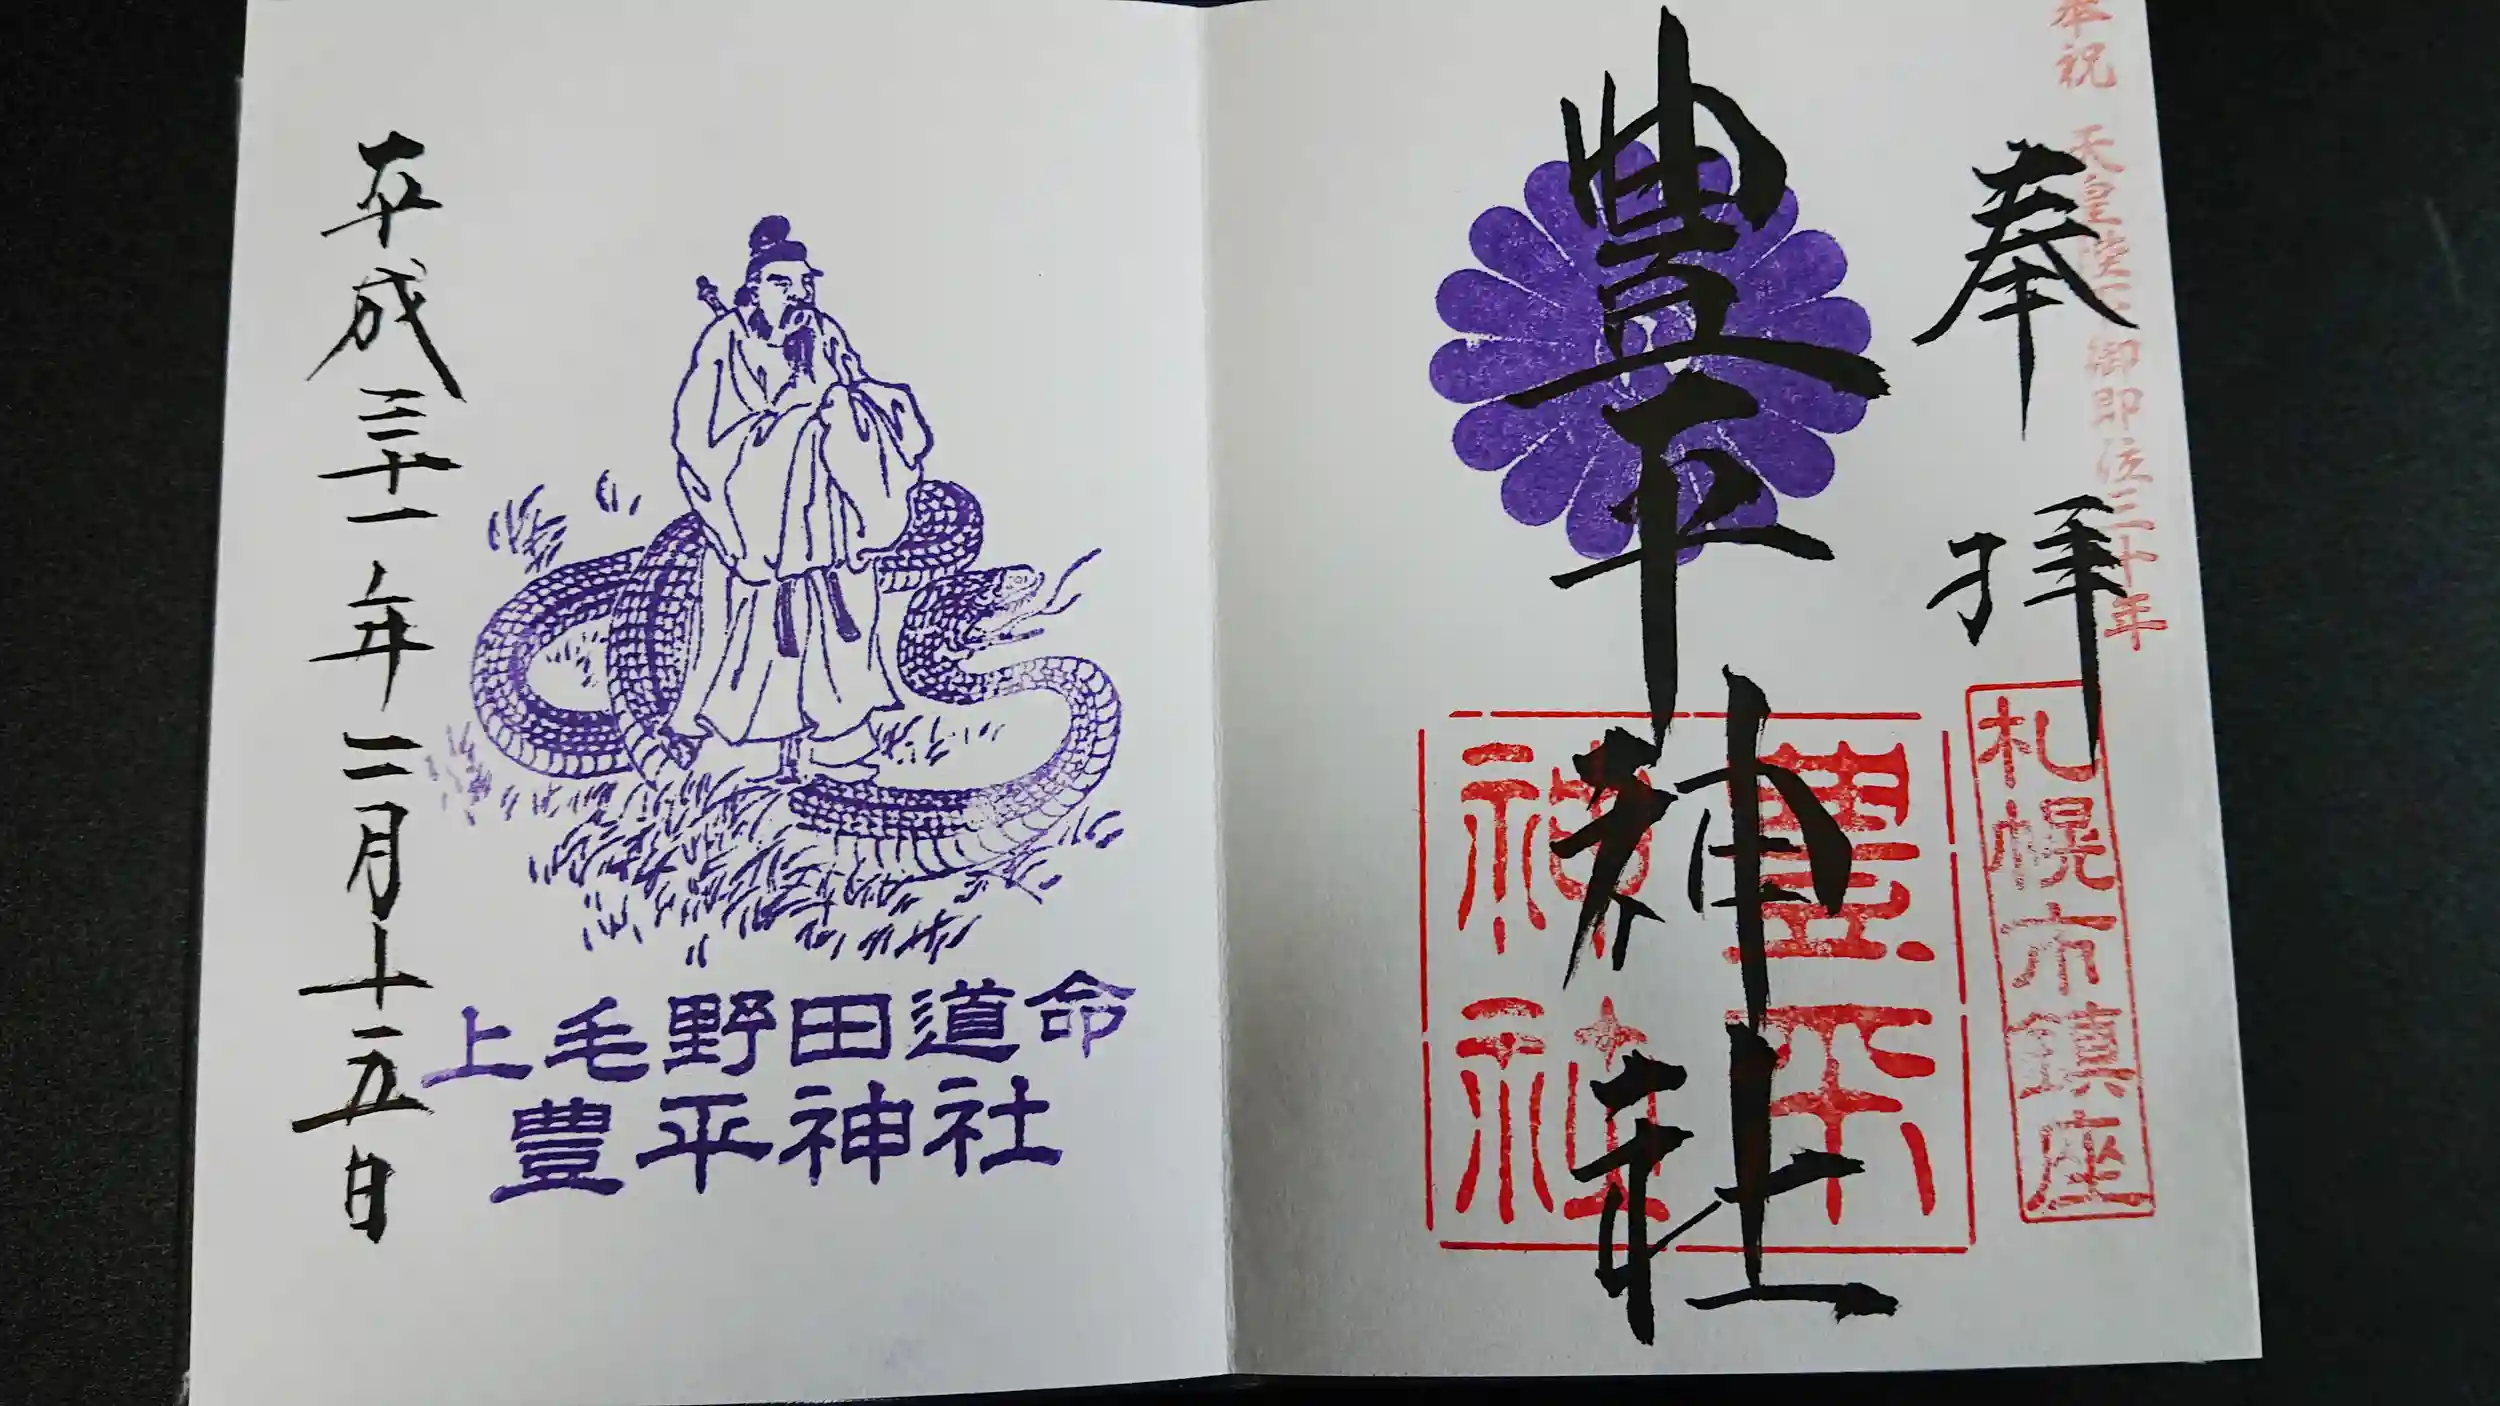 奉祝 天皇陛下御即位三十年
奉拝
札幌市鎮座
豊平神社
豊平
神社
上毛野田道命
豊平神社
平成三十一年二月十五日